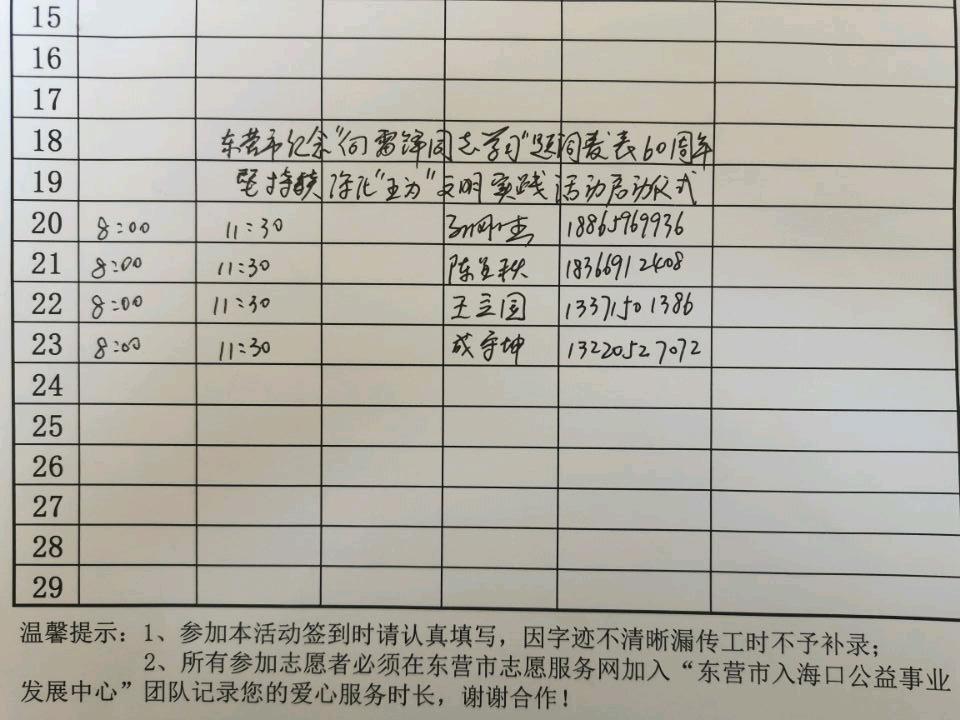 15
16
17
18 东营市纪念“向雷锋同志学习”题词发表60周年
19 坚持 深化“五为”文明实践活动启动仪式
20 8:00 11:30 18865969936
21 8:00 11:30 18366912408
22 8:00 11:30 王立国 13371501386
23 8:00 11:30 成守坤 13220527072
24
25
26
27
28
29
温馨提示：1、参加本活动签到时请认真填写，因字迹不清晰漏传工时不予补录；
2、所有参加志愿者必须在东营市志愿服务网加入“东营市入海口公益事业
发展中心”团队记录您的爱心服务时长，谢谢合作！